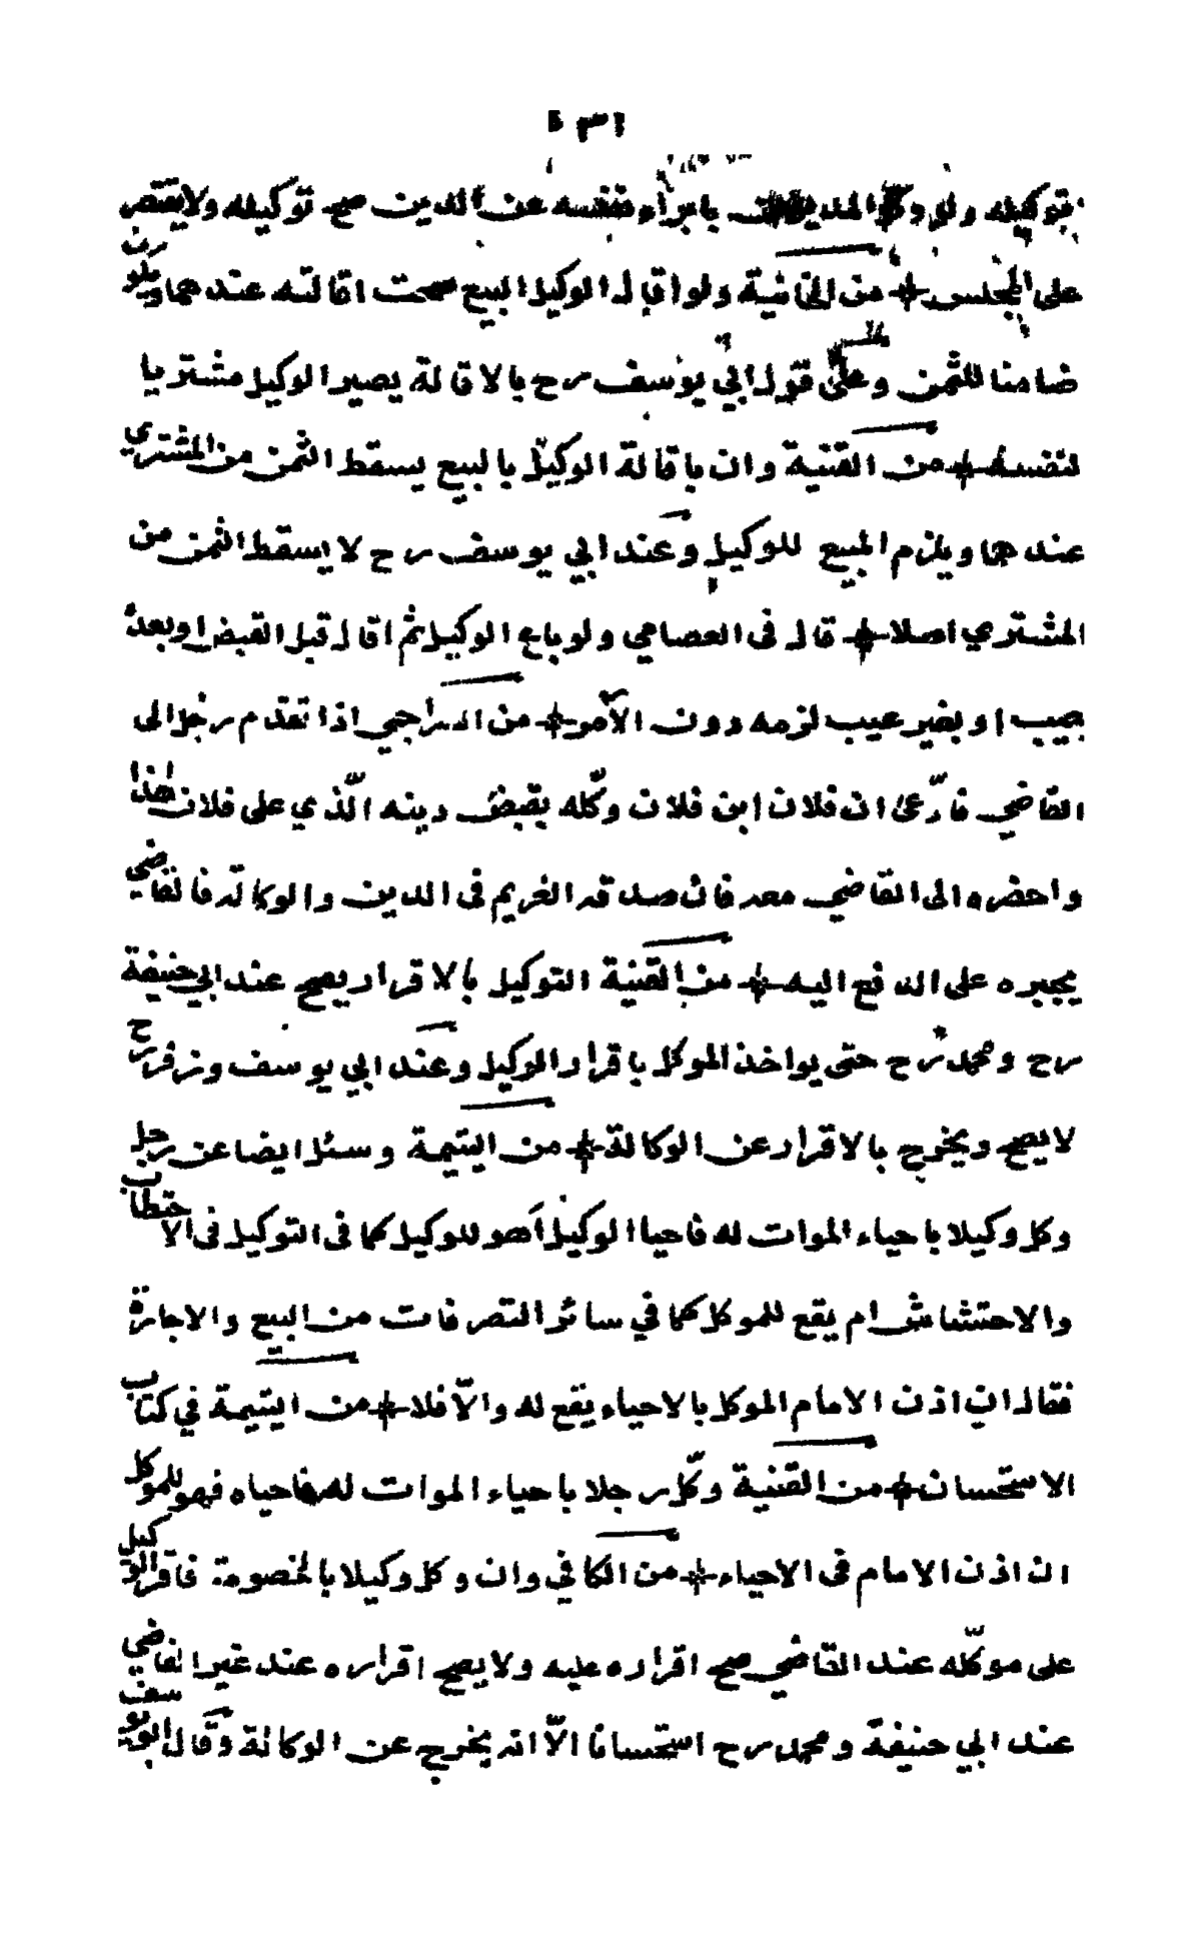 ٥٣١
بتوكيله ولو وكل المديون بابراء نفسه عن الدين صح توكيله ولا يقتصر
على المجلس * من الخانية ولو اقال الوكيل البيع صحت اقالته عندهما ويكون
ضامنا للثمن وعلى قول ابي يوسف رح بالاقالة يصير الوكيل مشتريا
لنفسه * من القنية وان باقالة الوكيل بالبيع يسقط الثمن من المشتري
عندهما ويلزم المبيع للوكيل وعند ابي يوسف رح لا يسقط الثمن من
المشتري اصلا * قال فى العصامي ولو باع الوكيل ثم اقال قبل القبض او بعده
بعيب او بغير عيب لزمه دون الآمر * من السراجي اذا تقدم رجل الى
القاضي فادّعى ان فلان ابن فلان وكّله بقبض دينه الّذي على فلان هذا
واحضره الى القاضي معه فان صدقه الغريم فى الدين والوكالة فالقاضي
يجبره على الدفع اليه * من القنية التوكيل بالاقرار يصح عند ابي حنيفة
رح ومحمد رح حتى يواخذ الموكل باقرار الوكيل وعند ابي يوسف وزفر رح
لا يصح ويخرج بالاقرار عن الوكالة * من اليتيمة وسئل ايضا عن رجل
وكل وكيلا باحياء الموات له فاحيا الوكيل أهو للوكيل كما فى التوكيل فى الاحتطاب
والاحتشاش ام يقع للموكل كما في سائر التصرفات من البيع والاجارة
فقال ان اذن الامام الموكل بالاحياء يقع له والّا فلا * من اليتيمة في كتاب
الاستحسان * من القنية وكّل رجلا باحياء الموات له فاحياه فهو للموكل
ان اذن الامام فى الاحياء * من الكافي وان وكل وكيلا بالخصومة فاقر الوكيل
على موكّله عند القاضي صح اقراره عليه ولا يصح اقراره عند غير القاضي
عند ابي حنيفة ومحمد رح استحسانا الّا انه يخرج عن الوكالة وقال ابو يوسف